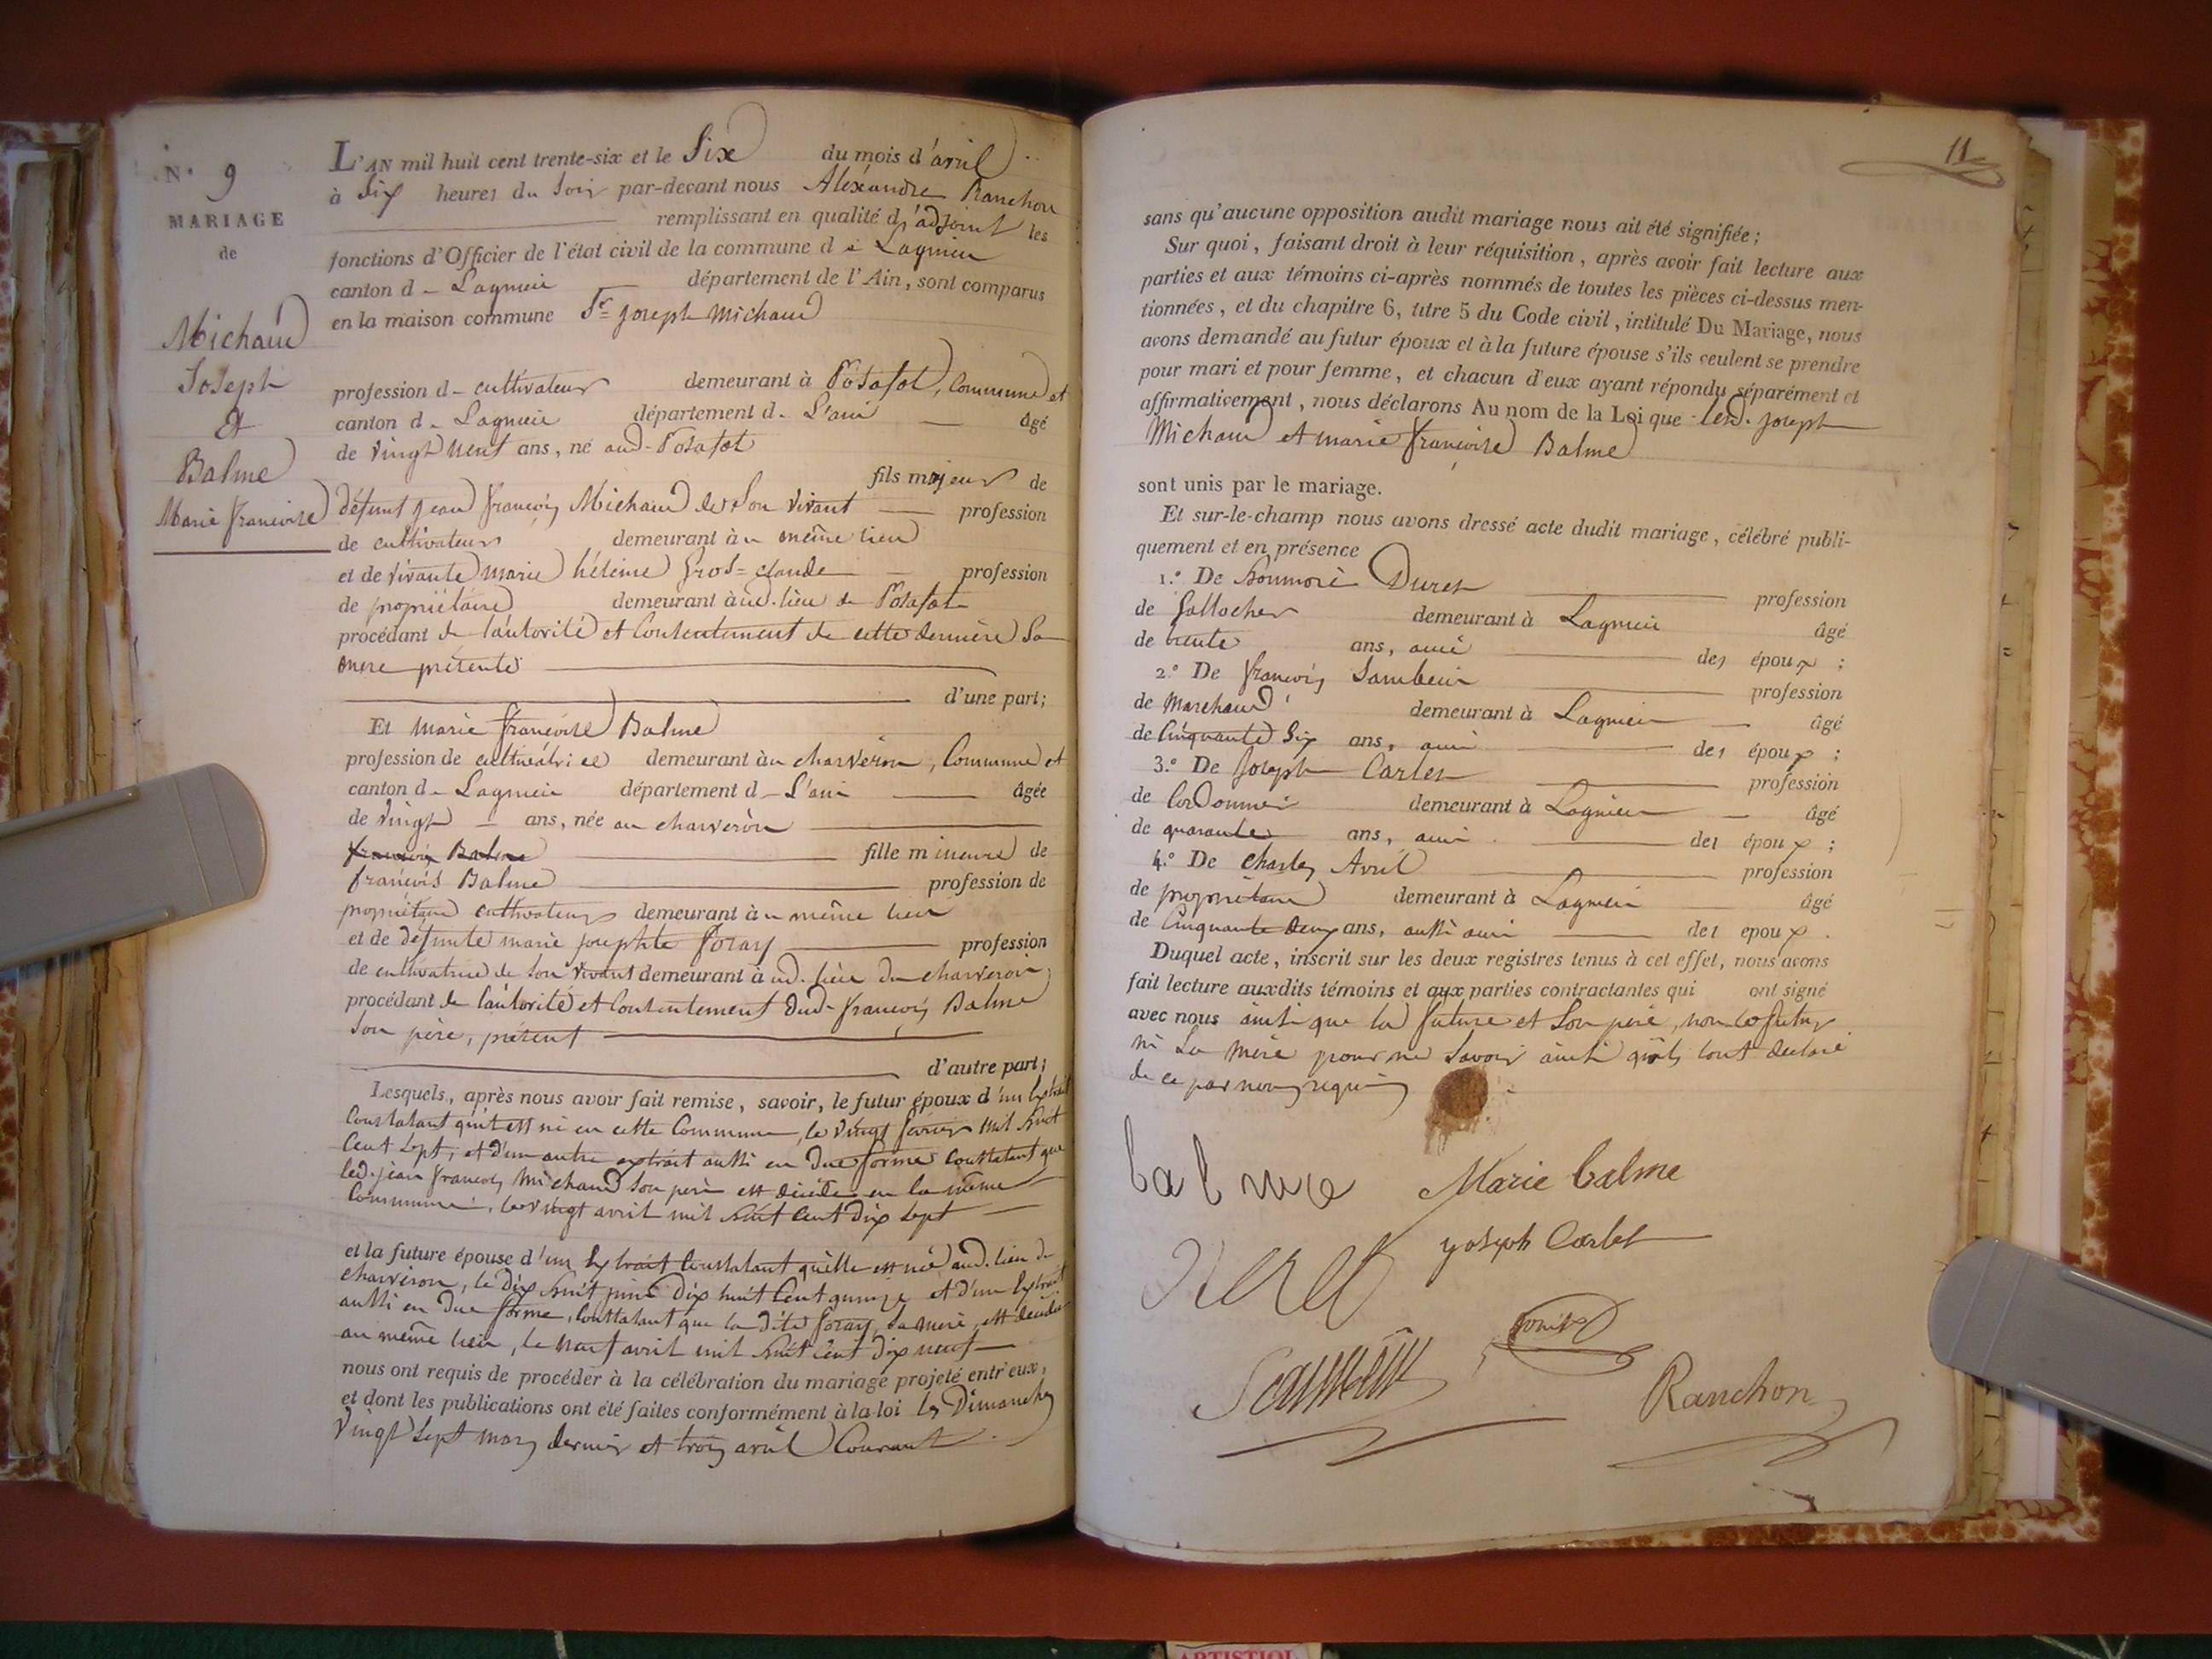 N.° 9
MARIAGE
de
Michaud
Joseph
Et
Balme
Marie françoise
L'AN mil huit cent trente-six et le Six du mois d'avril
à Six heures du Soir par-devant nous Aléxandre Ranchon
remplissant en qualité d'adjoint les
fonctions d'Officier de l'état civil de la commune de Lagnieu
canton d - Lagnieu département de l'Ain, sont comparus
en la maison commune Sr. joseph Michaud
profession d - cultivateur demeurant à Posafol, Commune et
canton d - Lagnieu département d - L'ain âgé
de vingt neuf ans, né aud. Posafol
fils majeur de
défunt jean françois Michaud de Son vivant profession
de cultivateur demeurant au même lieu
et de vivante marie hélène Gros=claude profession
de propriétaire demeurant aud. lieu de Posafol
procédant de l'autorité et Consentement de cette dernière Sa
mere présente
d'une part;
Et marie françoise Balme
profession de cultivatrice demeurant au charveron, Commune et
canton d - Lagnieu département d - L'ain âgée
de vingt ans, née au charveron
françois Balme fille mineure de
françois Balme profession de
propriétaire cultivateur demeurant au même lieu
et de défunte marie josephte foray profession
de cultivatrice de Son vivant demeurant aud. lieu du charveron,
procédant de l'autorité et Consentement dud. françois Balme
Son père, présent
d'autre part;
Lesquels, après nous avoir fait remise, savoir, le futur époux d'un Extrait
Constatant qu'il est né en cette Commune, le vingt fevrier mil huit
Cent Sept, et d'un autre extrait aussi en Due forme Constatant que
led. jean françois Michaud Son père est décédé en la même
Commune, le vingt avril mil huit Cent Dix Sept
et la future épouse d'un Extrait Constatant qu'elle est née aud. lieu de
charveron, le Dix huit juin Dix huit Cent quinze et d'un Extrait
aussi en Due forme, Constatant que la dite foray, Sa mere, est décédée
au même lieu, le neuf avril mil huit Cent Dix neuf
nous ont requis de procéder à la célébration du mariage projeté entr'eux,
et dont les publications ont été faites conformément à la loi les Dimanches
Vingt Sept mars dernier et trois avril Courant
11
sans qu'aucune opposition audit mariage nous ait été signifiée;
Sur quoi, faisant droit à leur réquisition, après avoir fait lecture aux
parties et aux témoins ci-après nommés de toutes les pièces ci-dessus men-
tionnées, et du chapitre 6, titre 5 du Code civil, intitulé Du Mariage, nous
avons demandé au futur époux et à la future épouse s'ils veulent se prendre
pour mari et pour femme, et chacun d'eux ayant répondu séparément et
affirmativement, nous déclarons Au nom de la Loi que lesd. joseph
Michaud et marie françoise Balme
sont unis par le mariage.
Et sur-le-champ nous avons dressé acte dudit mariage, célébré publi-
quement et en présence
1.° De honnoré Duret profession
de Gallocher demeurant à Lagnieu âgé
de trente ans, ami des époux;
2.° De françois Sambuin profession
de Marchand demeurant à Lagnieu âgé
de Cinquante Six ans, ami des époux;
3.° De Joseph Carlet profession
de Cordonnier demeurant à Lagnieu âgé
de quarante ans, ami des époux;
4.° De Charles Avril profession
de propriétaire demeurant à Lagnieu âgé
de Cinquante deux ans, aussi ami des époux.
Duquel acte, inscrit sur les deux registres tenus à cet effet, nous avons
fait lecture auxdits témoins et aux parties contractantes qui ont signé
avec nous ainsi que la future et Son père, non le futur
ni Sa mere pour ne Savoir ainsi qu'ils l'ont déclaré
de ce par nous requis
balme
Marie balme
yoseph Carlet
Ranchon